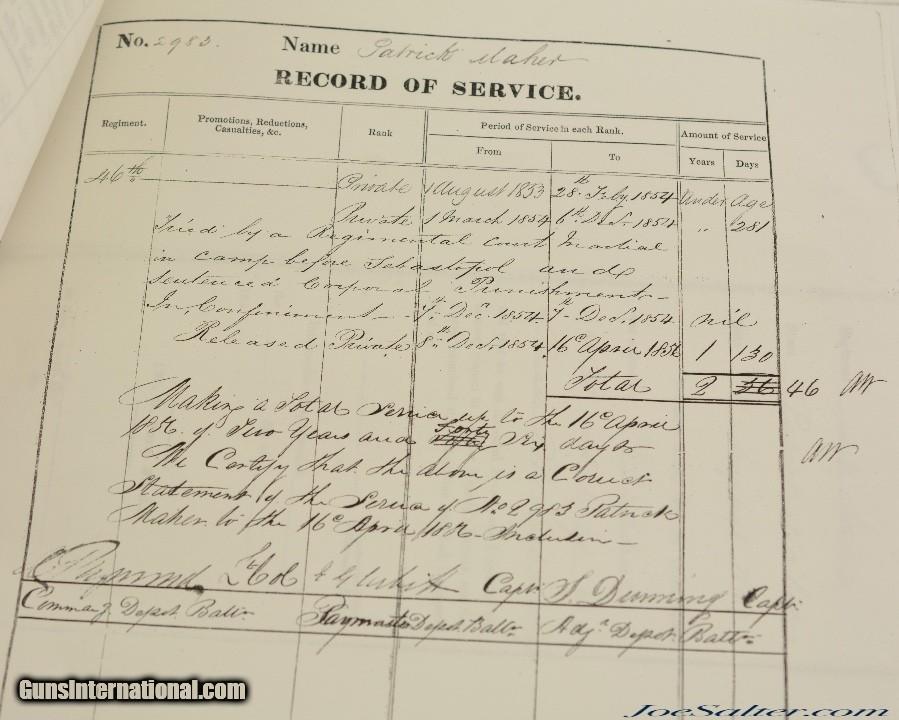 No. 2983. Name Patrick Maher
RECORD OF SERVICE.
Regiment. Promotions, Reductions, Casualties, &c. Rank Period of Service in each Rank. Amount of Service
From To Years Days
46th Private 1 August 1853 28th Feby. 1854 Under Age
Private 1 March 1854 6th Dec. 1854 " 281
Tried by a Regimental Court Martial
in Camp before Sebastopol and
Sentenced Corporal Punishment
In Confinement 7th Decr 1854 7th Dec. 1854 nil
Released Private 8th Dec. 1854 16 April 1856 1 130
Total 2 46
Making a Total Service up to the 16 April
1856 of Two Years and Forty Six days
We Certify that the above is a Correct
Statement of the Service of No 2983 Patrick
Maher to the 16 April 1856 Inclusive
Lt Col Capt. S. Dunning Capt.
Commandg. Depot Battn. Paymaster Depot Battn. Adjt. Depot Battn.
GunsInternational.com
JoeSalter.com